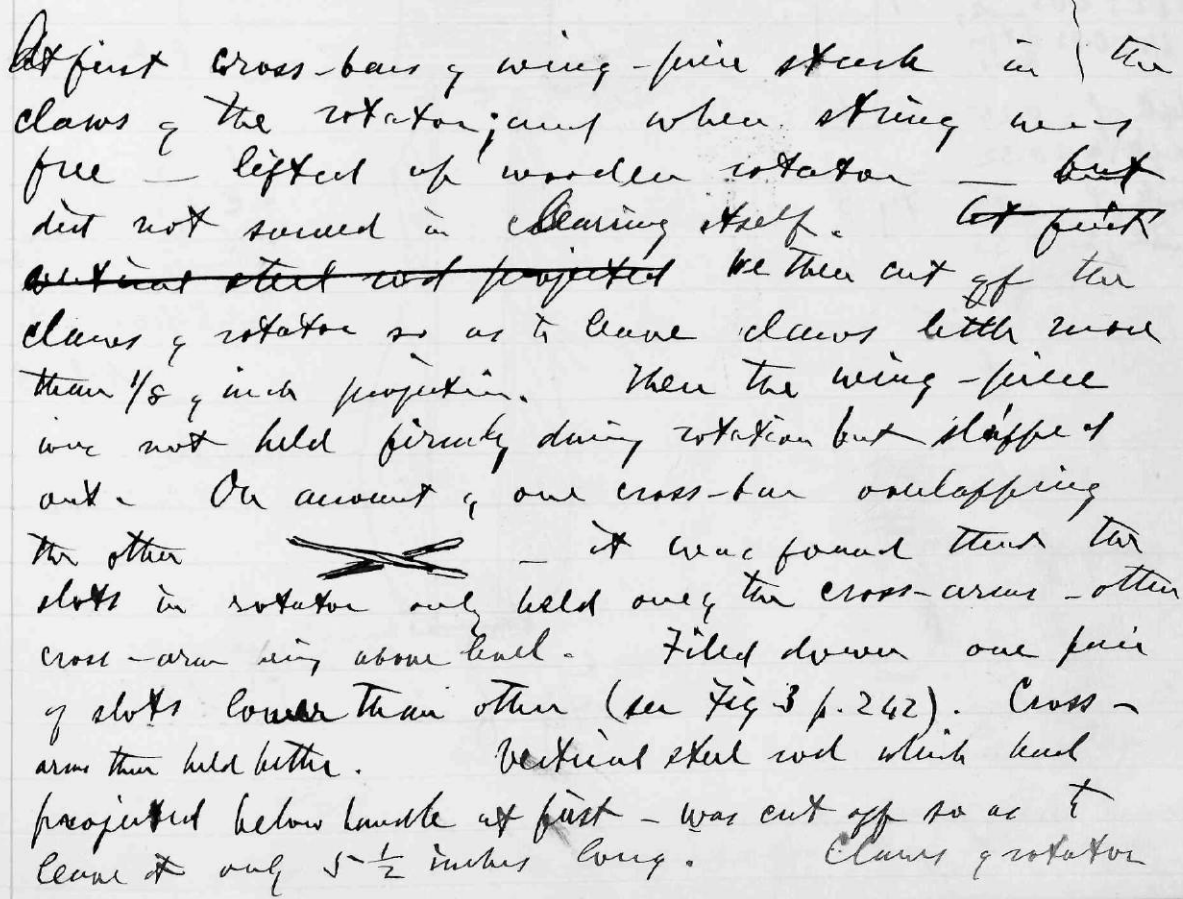 At first cross-bars of wing-piece stuck in } the
claws of the rotator; and when string was
free — lifted up wooden rotator — but
did not succeed in clearing itself. At first
vertical steel rod projected We then cut off the
claws of rotator so as to leave claws little more
than 1/8 of inch projecting. Then the wing-piece
was not held firmly during rotation but slipped
out. On account of one cross-bar overlapping
the other — it was found that the
slots in rotator only held one of the cross-arms - other
cross-arm being above level. Filed down one pair
of slots lower than other (see Fig 3 p. 242). Cross-
arms then held better. Vertical steel rod which had
projected below handle at first - was cut off so as to
leave it only 5 1/2 inches long. Claws of rotator